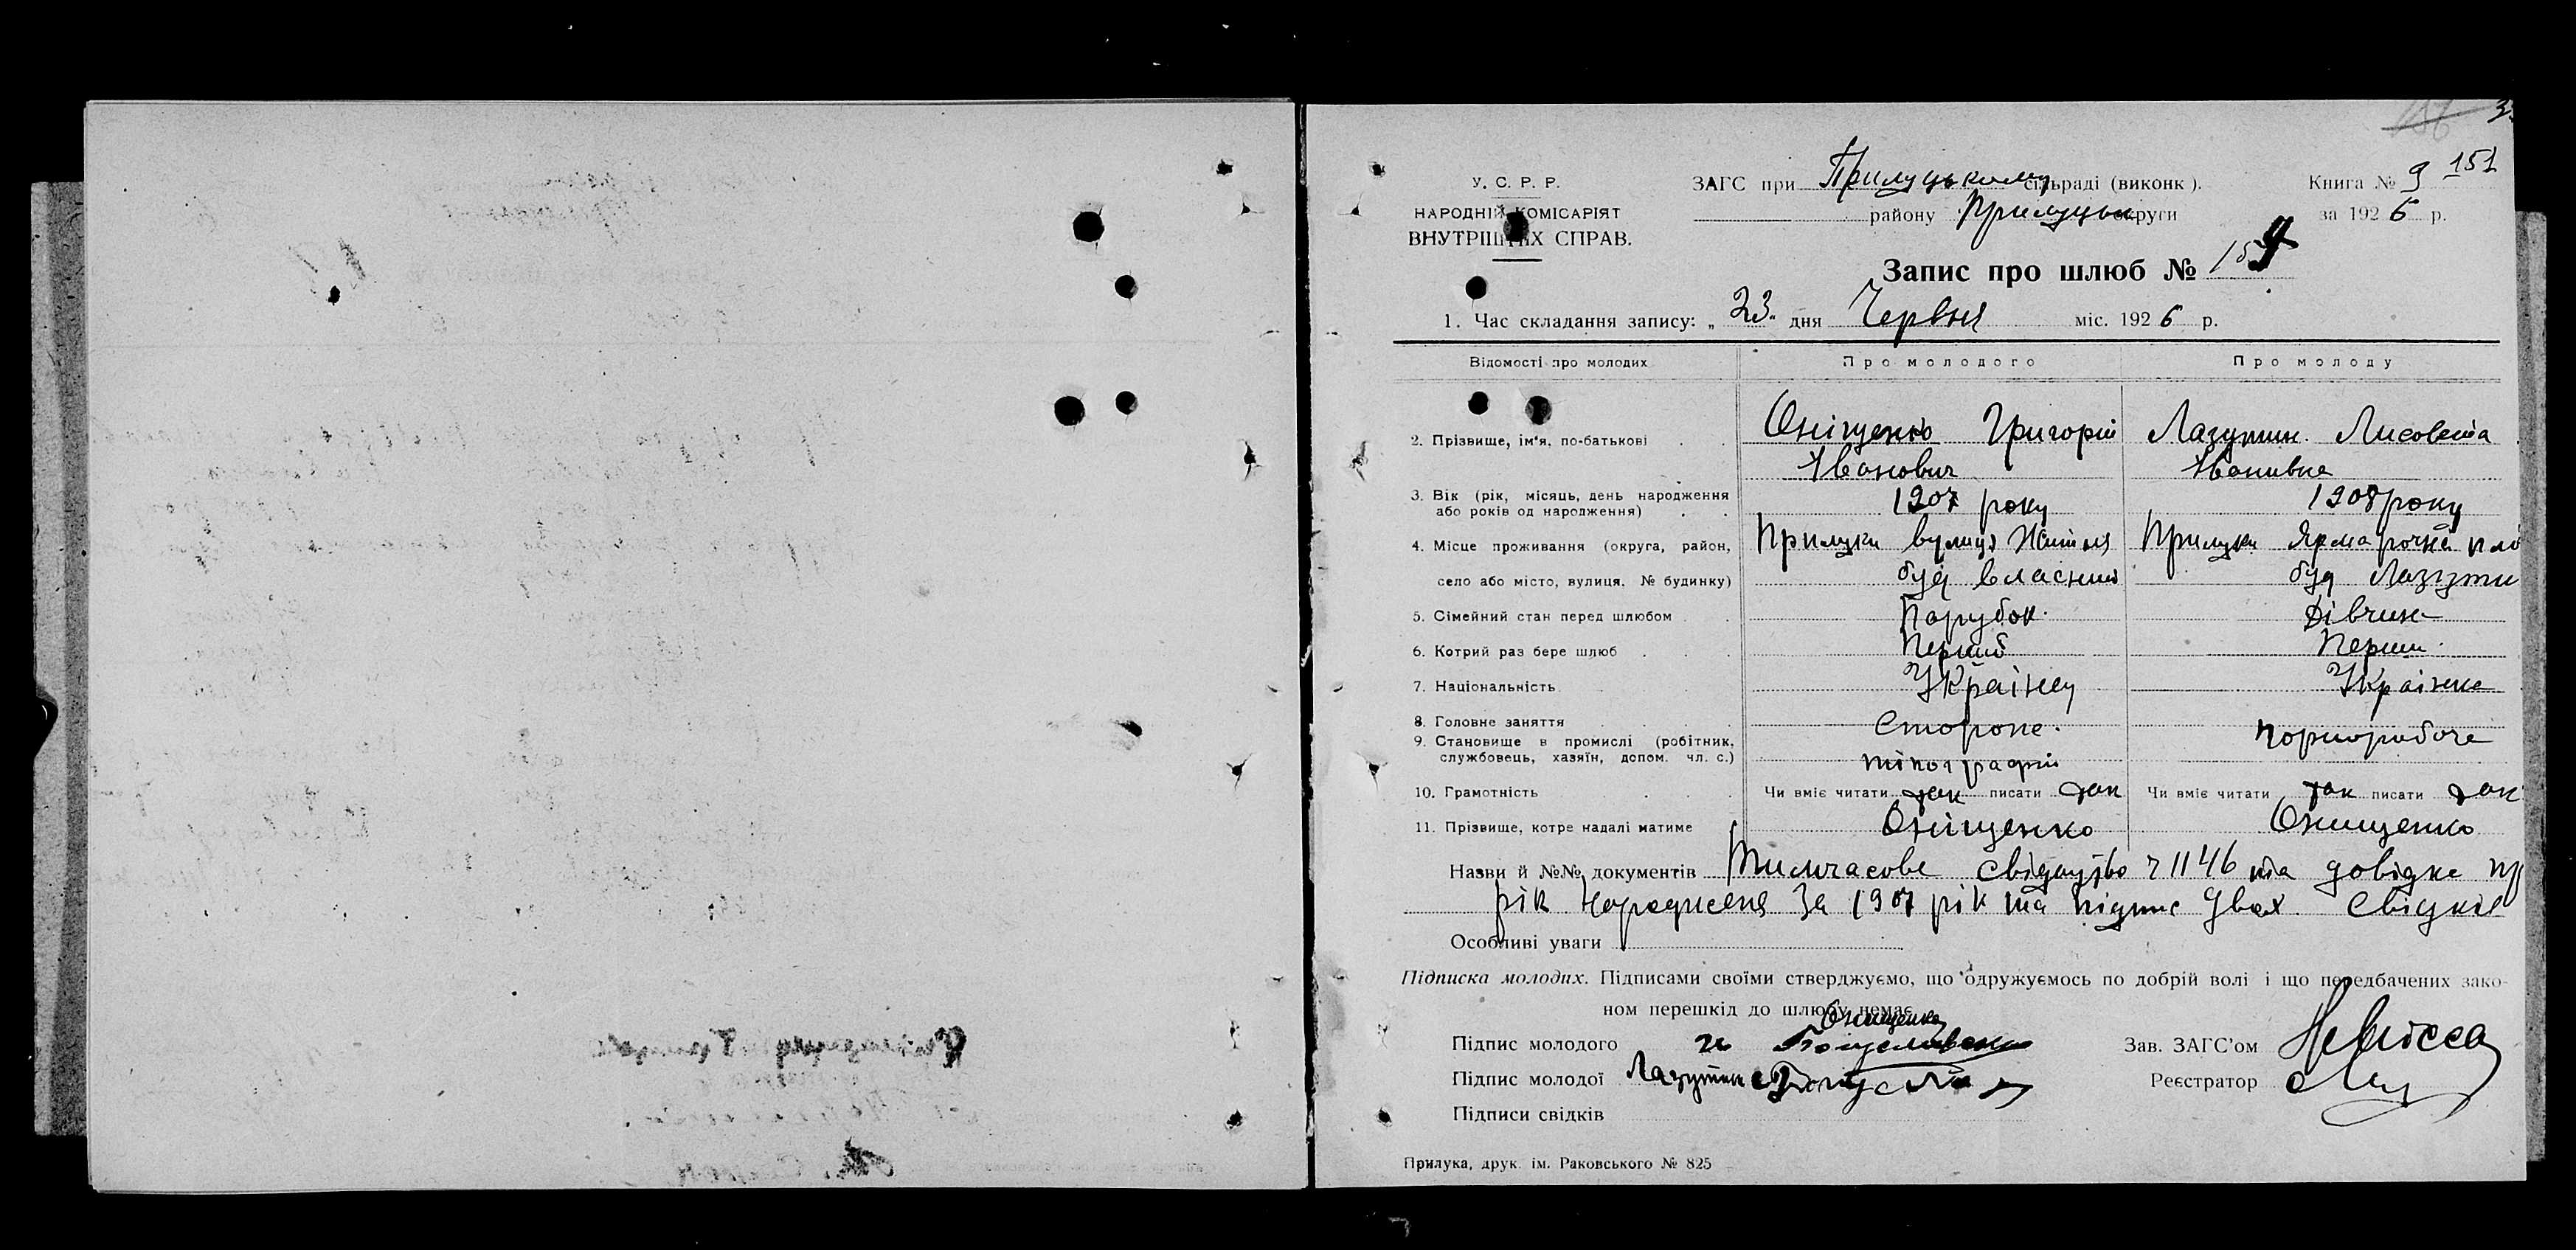 151
У. С. Р. Р.
НАРОДНІЙ КОМІСАРІЯТ
ВНУТРІШНІХ СПРАВ.
ЗАГС при Прилуцькому сільраді (виконк).
району Прилуцьк округи
Книга № 9
за 1926 р.
Запис про шлюб № 159
1. Час складання запису: „23" дня Червня міс. 1926 р.
Відомості про молодих
Про молодого
Про молоду
2. Прізвище, ім'я, по-батькові
Оніщенко Григорій
Іванович
Лазутин Лисовета
Іванивна
3. Вік (рік, місяць, день народження
або років од народження)
1907 року
1908 року
4. Місце проживання (округа, район,
село або місто, вулиця, № будинку)
Прилуки вулиця Житня
буд власний
Прилуки Ярмарочна пло
буд Лазути
5. Сімейний стан перед шлюбом
Парубок
Дівчина
6. Котрий раз бере шлюб
Перший
Перши
7. Національність
Українец
Украінка
8. Головне заняття
9. Становище в промислі (робітник,
службовець, хазяїн, допом. чл. с.)
Сторож
тіпографії
Чорноробоча
10. Грамотність
Чи вміє читати так писати так
Чи вміє читати так писати так
11. Прізвище, котре надалі матиме
Оніщенко
Онищенко
Назви й №№ документів Тимчасове свідоцтво ч 1146 та довідка пр
рік народженя за 1907 рік та підпис двох свідків
Особливі уваги
Підписка молодих. Підписами своїми стверджуємо, що одружуємось по добрій волі і що передбачених зако-
ном перешкід до шлюбу немає.
Підпис молодого Онищенко
Підпис молодої Лазутин
Підписи свідків
Зав. ЗАГС'ом
Реєстратор
Прилука, друк. ім. Раковського № 825